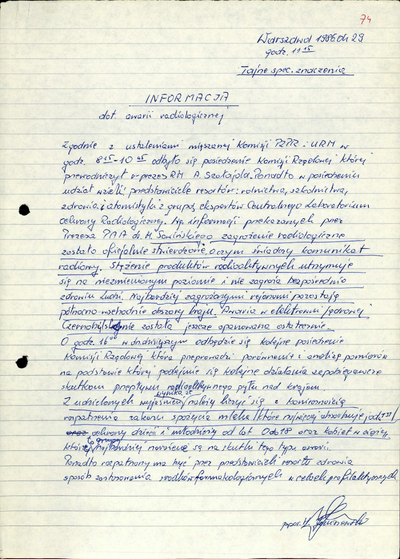 74
Warszawa 1986.04.29
godz. 11 15
Tajne spec. znaczenia
INFORMACJA
dot. awarii radiologicznej
Zgodnie z ustaleniami mieszanej Komisji PZPR i URM w
godz. 8 15 - 10 45 odbyło się posiedzenie Komisji Rządowej której
przewodniczył v-prezes RM A. Szałajda. Ponadto w posiedzeniu
udział wzięli przedstawiciele resortów: rolnictwa, szkolnictwa,
zdrowia i atomistyki z grupą ekspertów Centralnego Laboratorium
Ochrony Radiologicznej. Wg informacji przekazanych przez
Prezesa PAA dr. M. Sowińskiego zagrożenie radiologiczne
zostało oficjalnie stwierdzone, o czym świadczy komunikat
radiowy. Stężenie produktów radioaktywnych utrzymuje
się na niezmienionym poziomie i nie zagraża bezpośrednio
zdrowiu ludzi. Najbardziej zagrożonymi rejonami pozostają
północno-wschodnie obszary kraju. Awaria w elektrowni jądrowej
Czernobyl nie została jeszcze opanowana ostatecznie.
O godz. 16 00 w dniu dzisiejszym odbędzie się kolejne posiedzenie
Komisji Rządowej która przeprowadzi porównanie i analizę pomiarów
na podstawie który podejmie się kolejne działania zapobiegawcze
skutkom przepływu radioaktywnego pyłu nad krajem.
Z udzielonych wyjaśnień wynika że należy liczyć się z koniecznością
rozpatrzenia zakazu spożycia mleka (które najwięcej absorbuje jod 131)
oraz ochrony dzieci i młodzieży od lat 0 do 18 oraz kobiet w ciąży,
która to grupa najbardziej narażona są na skutki tego typu awarii.
Ponadto rozpatrzony ma być przez przedstawicieli resortu zdrowia
sposób zastosowania środków farmakologicznych w celach profilaktycznych